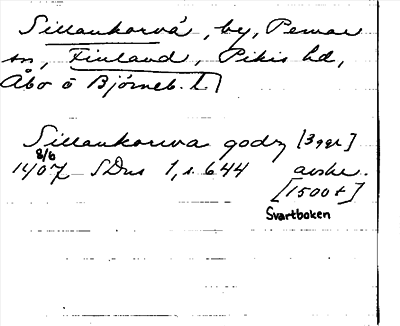 Sillankorvå, by, Pemar
sn, Finland, Pikis hd,
Åbo o Björneb. l.
Sillankorva godz [3 ggr]
8/6
1407 SDns 1, s. 644 avskr.
[1500 t]
Svartboken